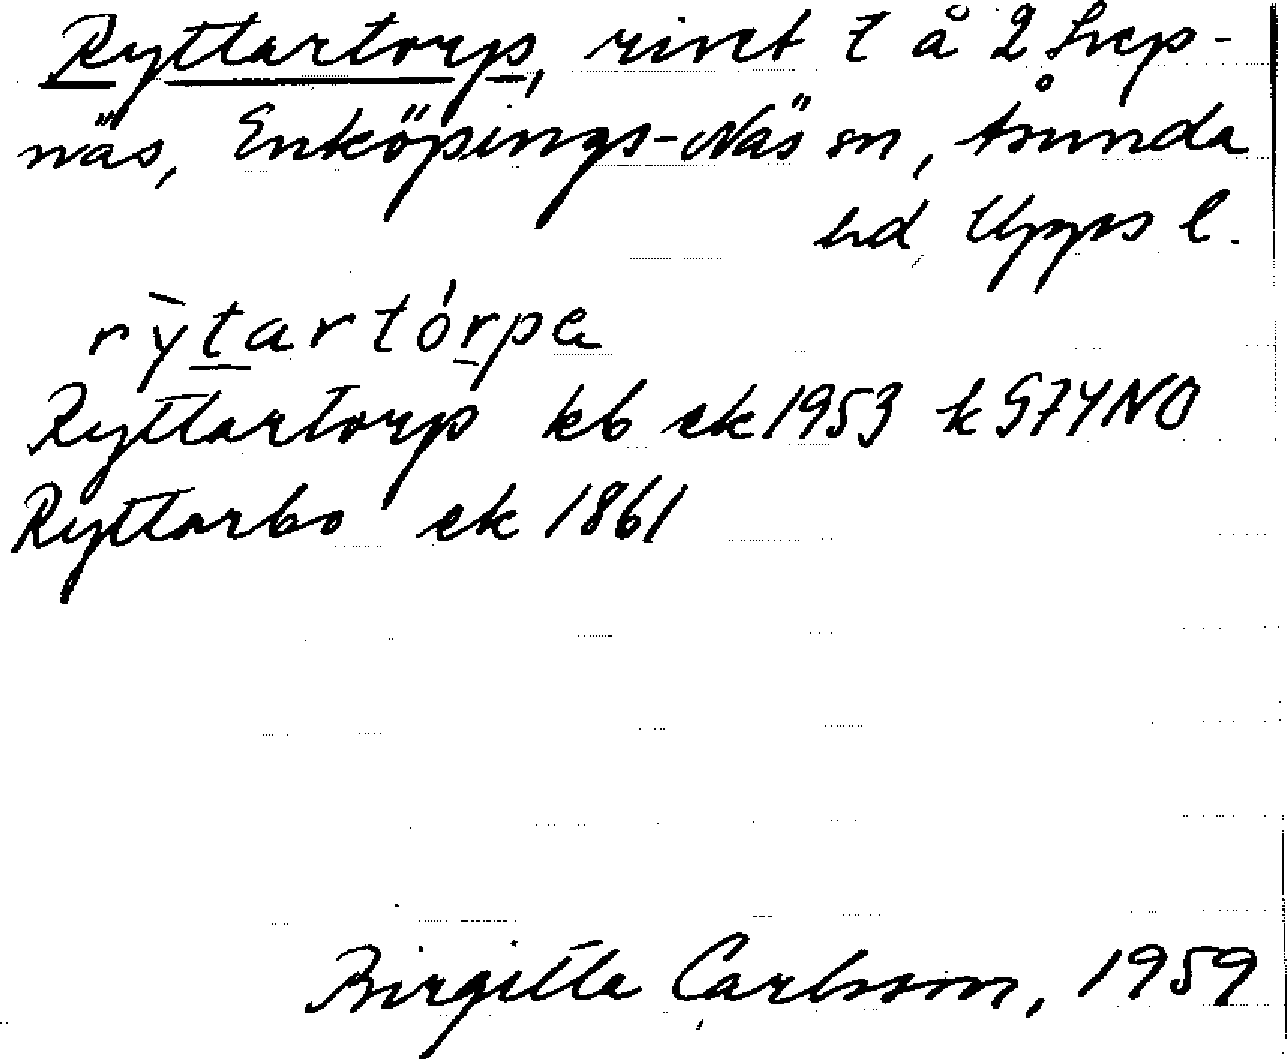 Ryttartorp, rivet t å 2 Svep-
näs, Enköpings-Näs sn, Åsunda
hd Upps l.
rỳtartórpa
Ryttartorp kb ek 1953 k 574 NO
Ryttarbo ek 1861
Birgitta Carlsson, 1959